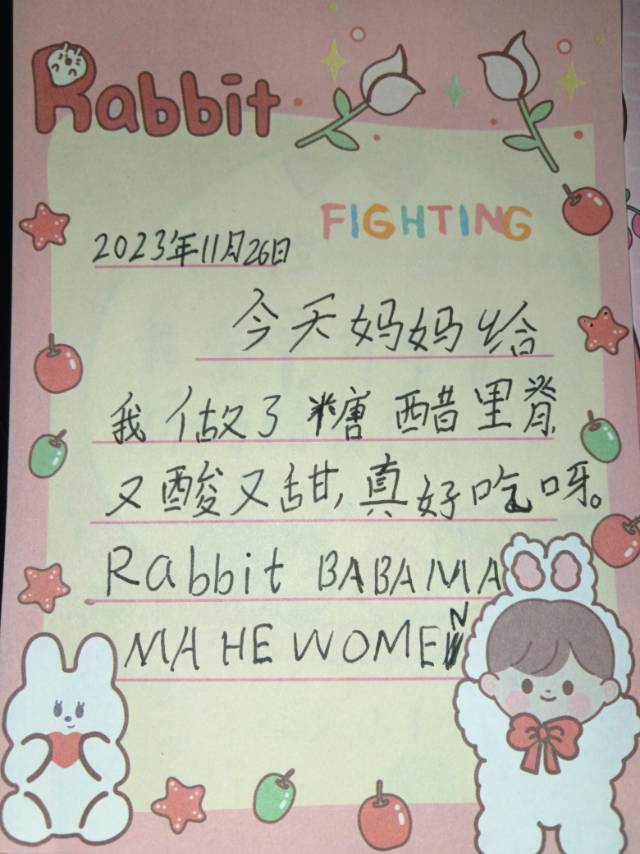 Rabbit
FIGHTING
2023年11月26日
今天妈妈给
我做了糖醋里脊
又酸又甜,真好吃呀。
Rabbit BABAMA
MA HE WOMEN